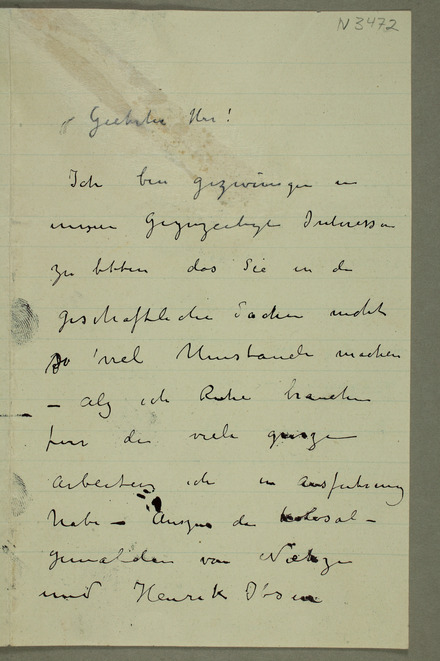 N 3472
Geehrter Herr!
Ich bin gezwungen in
unser Gegenzeitige Interesse
zu bitten das Sie in die
geschäftliche Sachen nicht
so viel Umstande machen
– als ich Ruhe brauche
fur die viele
Arbeiten ich in ausfuhrung
habe – der kolosal-
gemalden von
und Henrik Ibsen